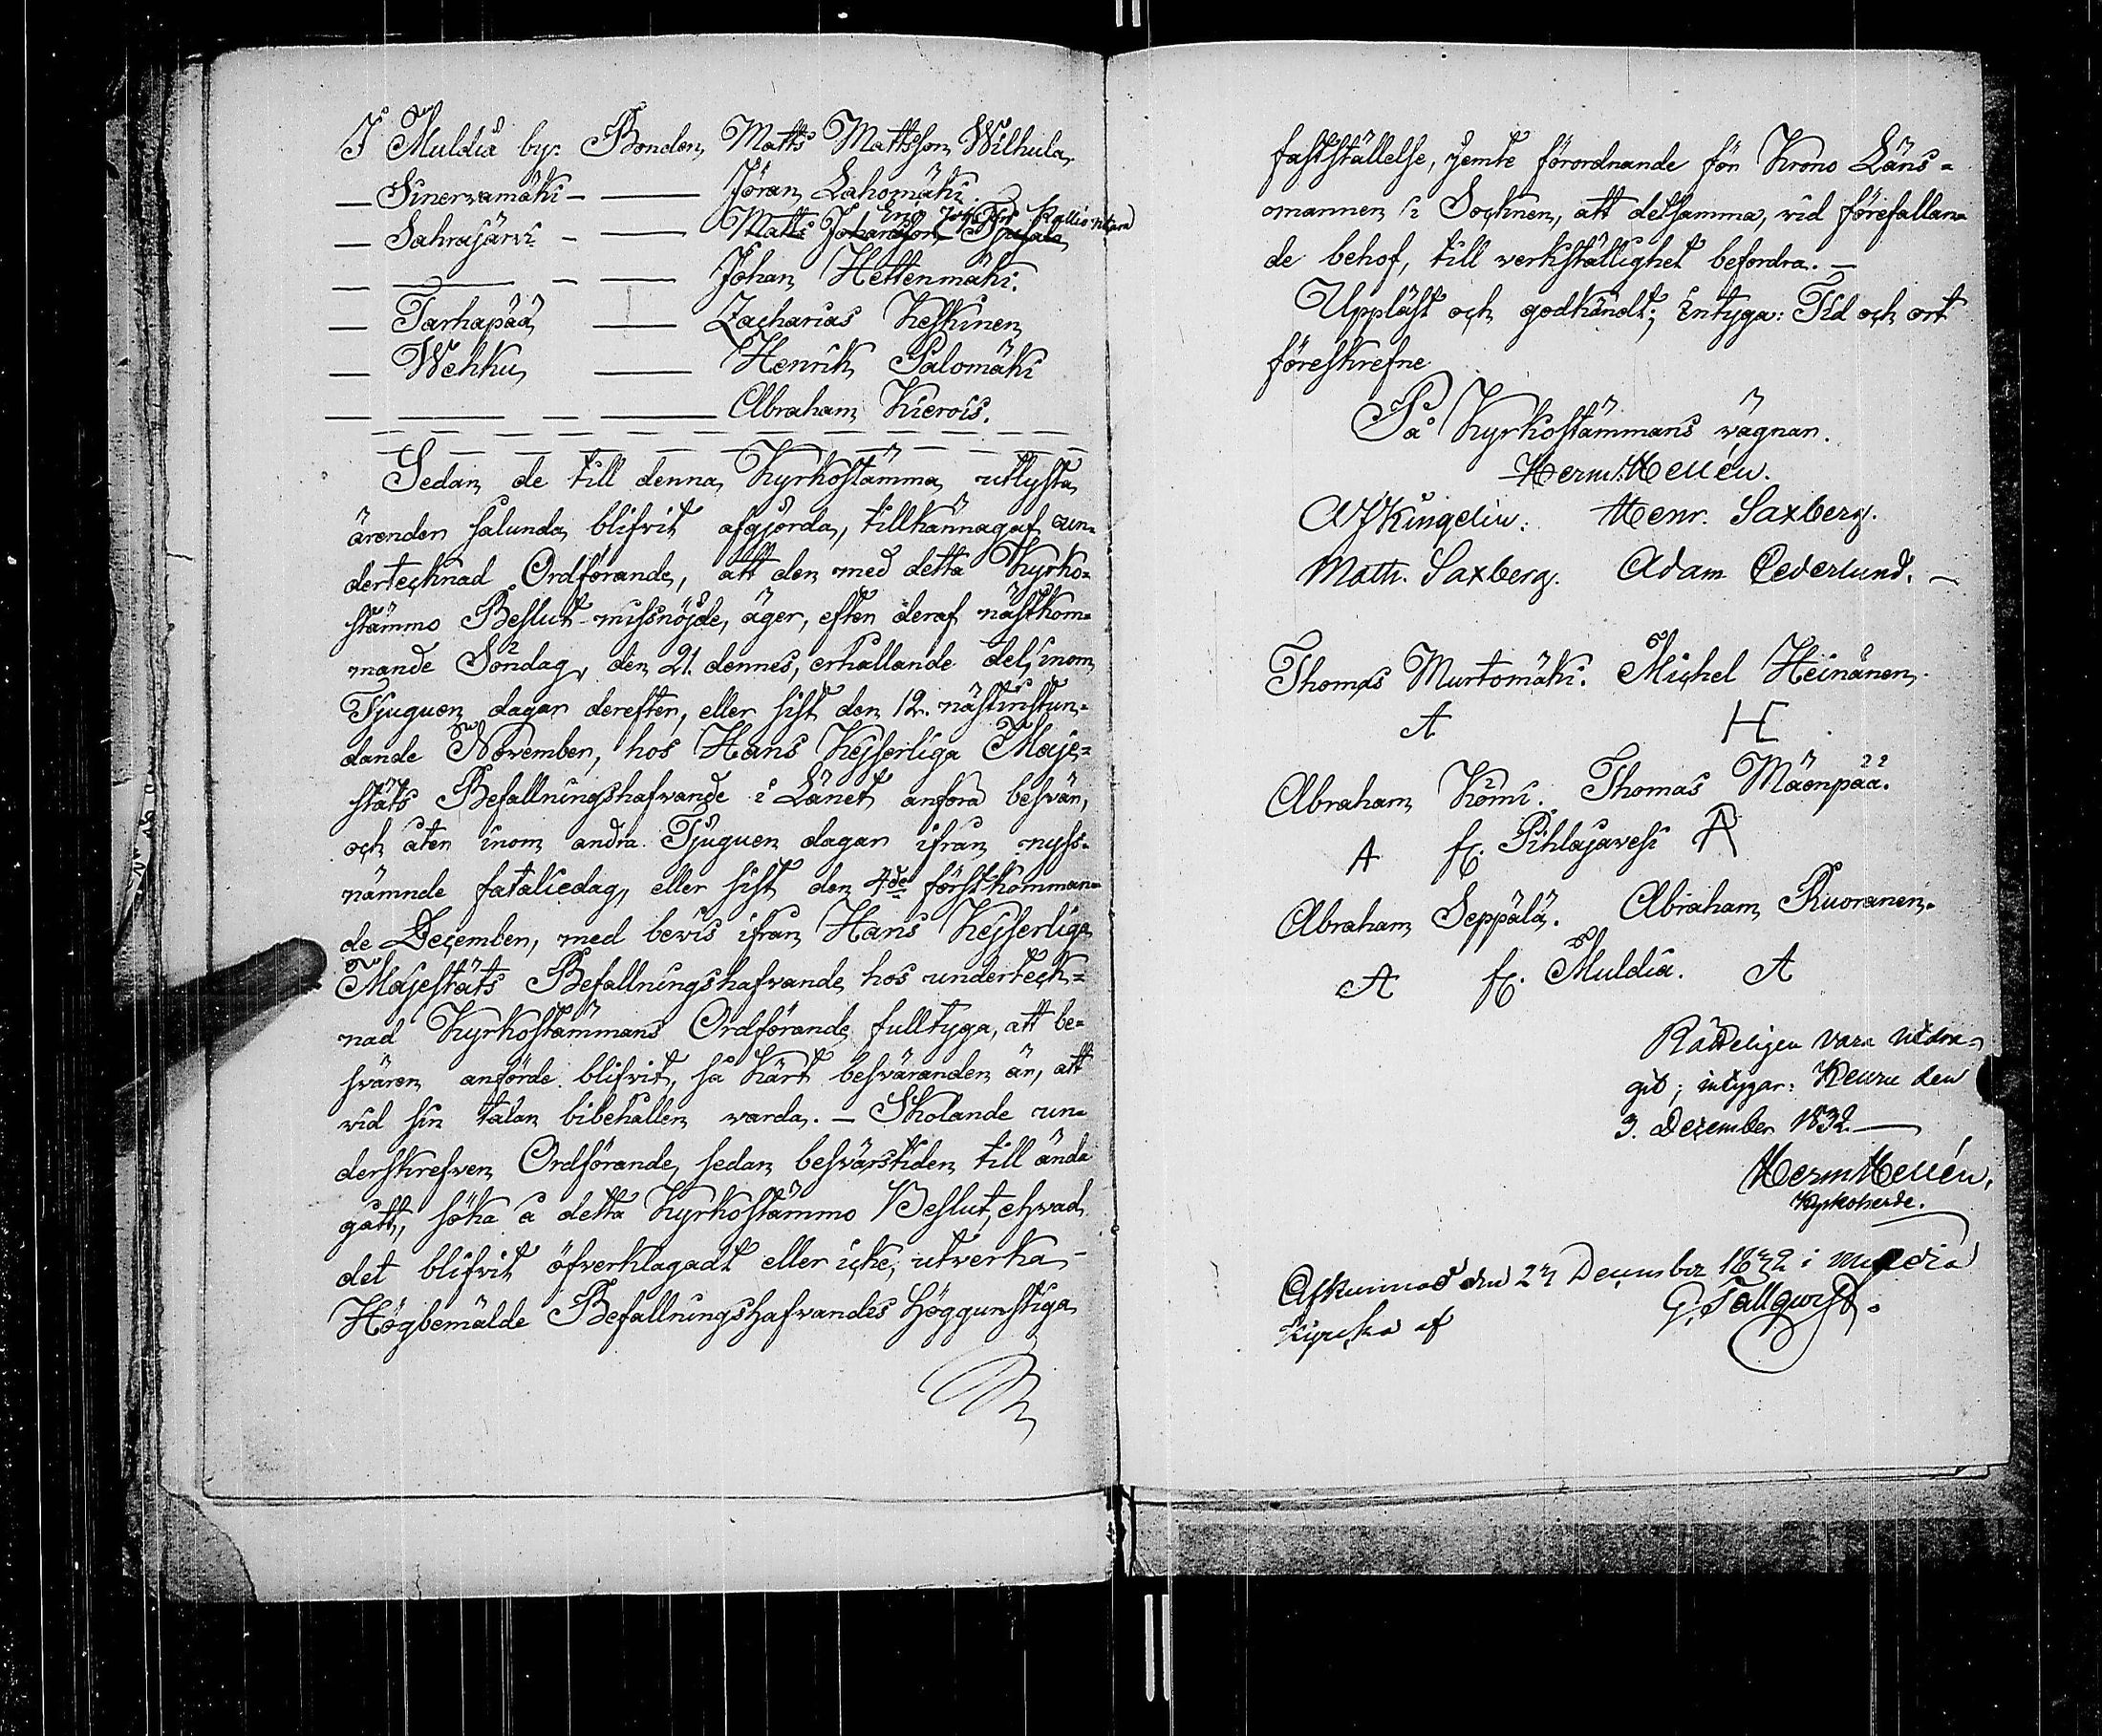 I Muldia by. Bonden Matts Mattsson Wilhula,
— Sinervamäki - — Jöran Lahomäki.
— Sahrajärvi - — Matts Johansson
— — - — Johan Hettenmäki.
— Tarhapää — Zacharias Keskinen
— Wehku — Henrik Salomäki
— — — — Abraham Kierois.
Sedan de till denna Kyrkostämma utlysta
ärenden sålunda blifvit afgjorda, tillkännagaf un-
dertecknad Ordförande, att den med detta Kyrko-
stämmo Beslut missnöjde, äger, efter deraf nästkom-
mande Söndag, den 21. dennes, erhållande del, inom
Tjuguen dagar derefter, eller sist den 12. nästinstun-
dande November, hos Hans Kejserliga Maje-
stäts Befallningshafvande i Länet anföra besvär,
och åter inom andra Tjuguen dagar ifrån nyss-
nämnde fataliedag, eller sist den 4de förstkomman-
de December, med bevis ifrån Hans Kejserliga
Majestäts Befallningshafvande hos underteck-
nad Kyrkostämmans Ordförande fulltyga, att be-
svären anförde blifvit, så kärt besväranden är, att
vid sin talan bibehållen varda. — Skolande un-
derskrefven Ordförande, sedan besvärstiden till ända
gått, söka å detta Kyrkostämmo Beslut, ehvad
det blifvit öfverklagadt eller icke, utverka
Högbemälde Befallningshafvandes Höggunstiga
fastställelse, jemte förordnande för Krono Läns-
omannen i Socknen, att detsamma, vid förefallan-
de behof, till verkställighet befordra. —
Uppläst och godkändt; intyga: Tid och ort
föreskrefne
På Kyrkostämmans vägnar.
Herm. Hellén.
A J Kingelin. Henr. Saxberg.
Math. Saxberg. Adam Cederlund. —
Thomas Murtomäki. Michel Heinänen.
A H
Abraham Kömi. Thomas Mäenpää.
A fr. Pihlajavesi A
Abraham Seppälä. Abraham Ruoranen.
A fr. Muldia. A
Rätteligen vara utdra-
git; intygar: Keuru den
3. December 1832 —
Herm Hellén,
Kyrkoherde.
Afkunnad den 23 December 1832 i Muldia
Kyrcka af G. Tallqvist.